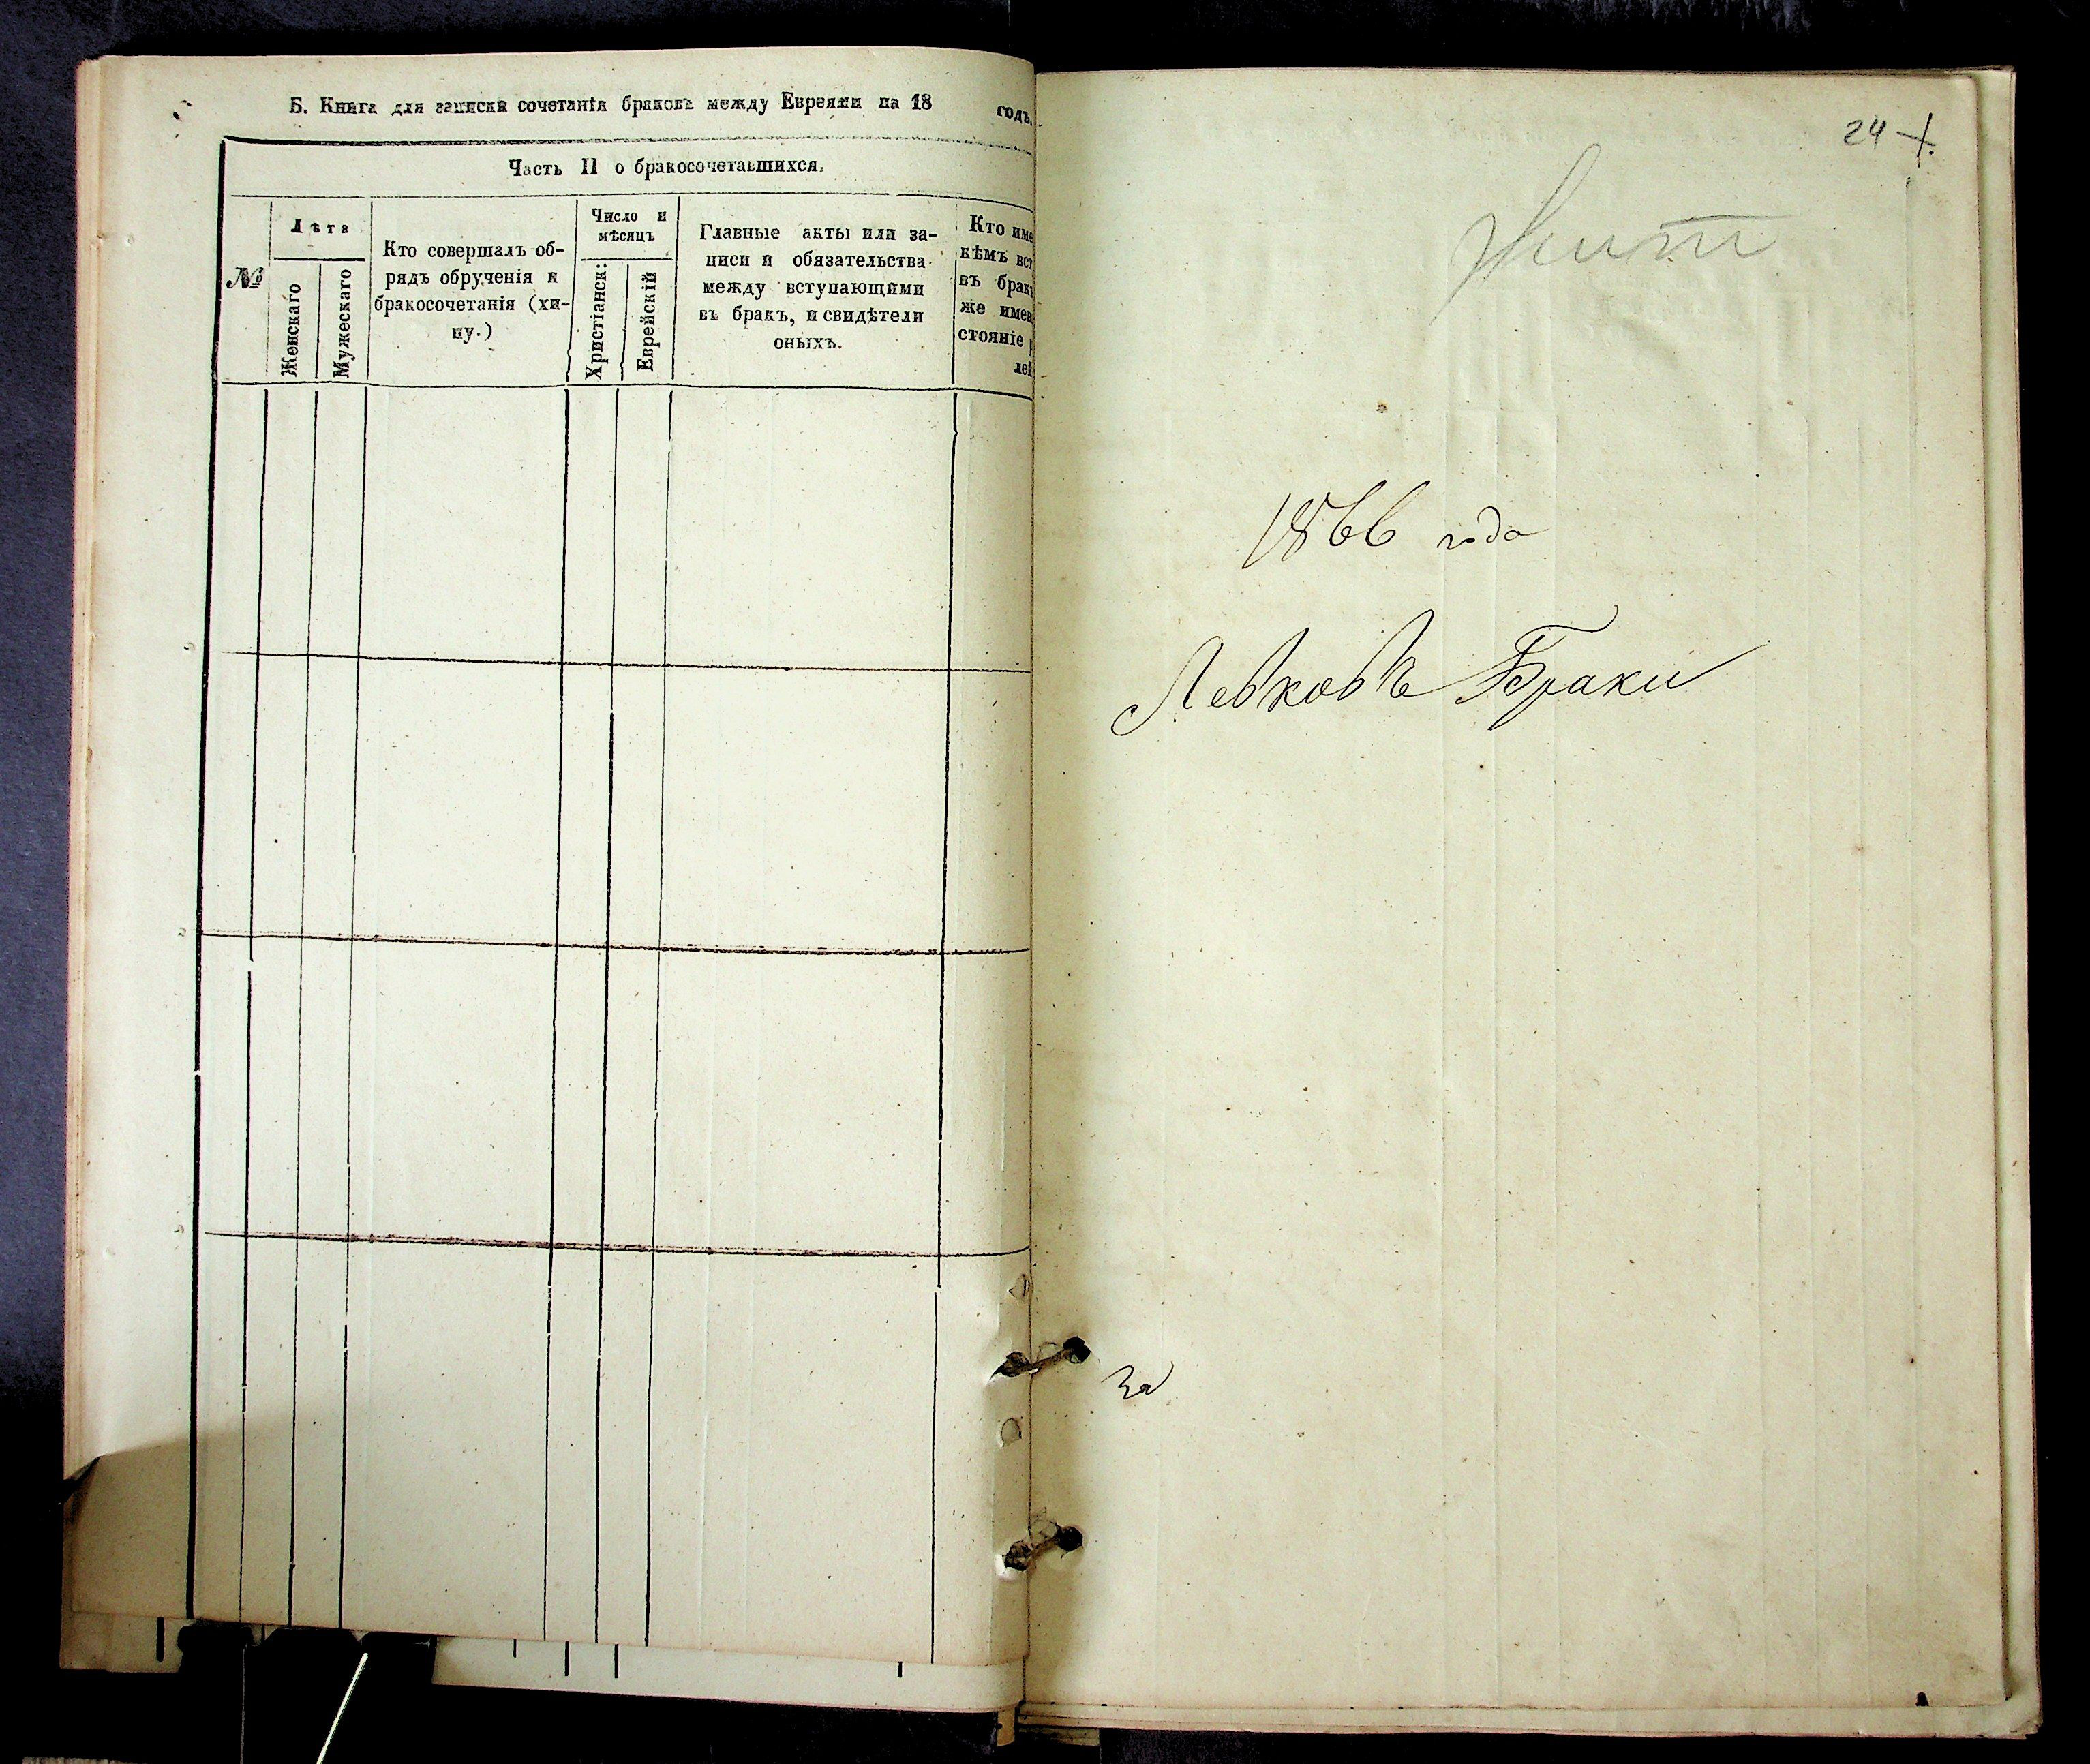 Б. Книга для записки сочетанія браковъ между Евреями на 18 годъ.
Часть II о бракосочетавшихся.
№
Лѣта
Женскаго
Мужескаго
Кто совершалъ об-
рядъ обрученія и
бракосочетанія (хи-
пу.)
Число и
мѣсяцъ
Христіанск:
Еврейскій
Главные акты или за-
писи и обязательства
между вступающими
въ бракъ, и свидѣтели
оныхъ.
Кто име
кѣмъ вст
въ брак
же имен
стояніе р
лей
24
Жит
1866 года
Левковъ Браки